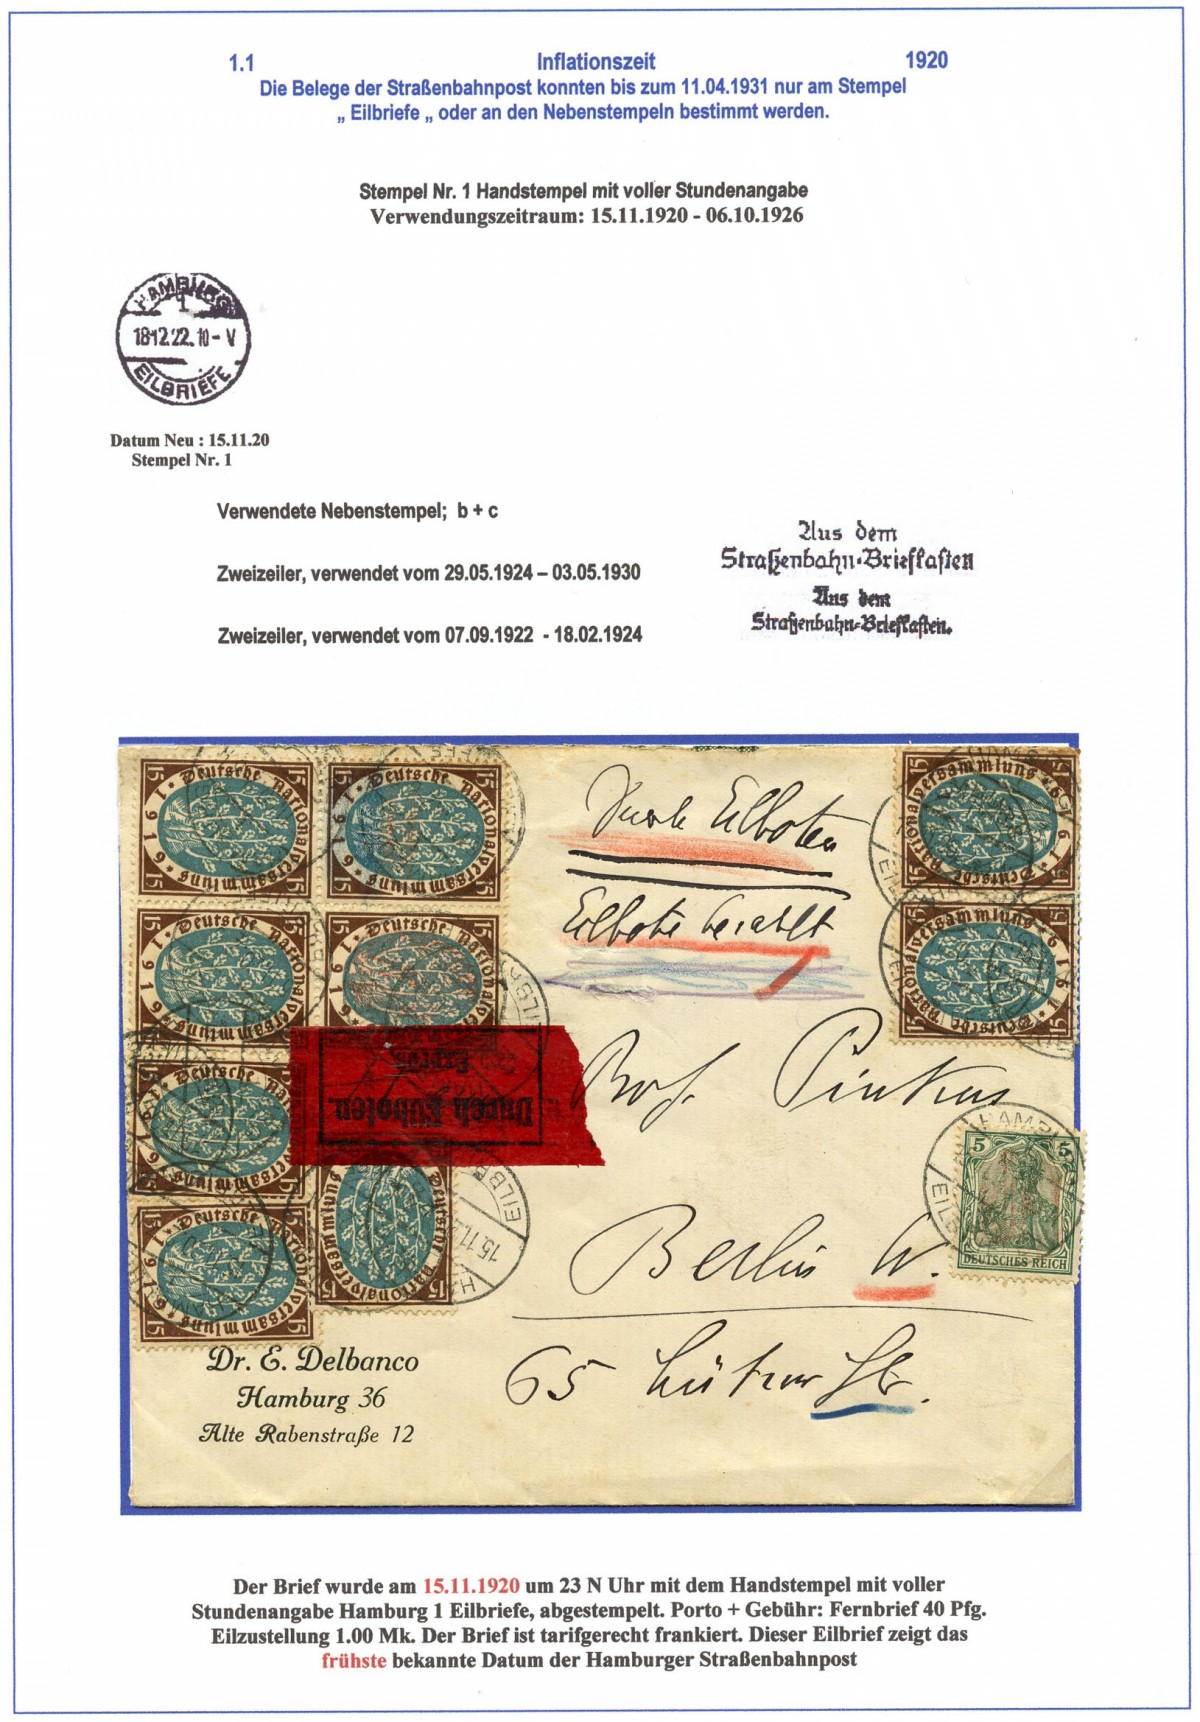 1.1 Inflationszeit 1920
Die Belege der Straßenbahnpost konnten bis zum 11.04.1931 nur am Stempel
„ Eilbriefe „ oder an den Nebenstempeln bestimmt werden.
Stempel Nr. 1 Handstempel mit voller Stundenangabe
Verwendungszeitraum: 15.11.1920 - 06.10.1926
HAMBURG
1
18.12.22. 10 - V
EILBRIEFE
Datum Neu : 15.11.20
Stempel Nr. 1
Verwendete Nebenstempel; b + c
Zweizeiler, verwendet vom 29.05.1924 – 03.05.1930
Zweizeiler, verwendet vom 07.09.1922 - 18.02.1924
Aus dem
Straßenbahn-Briefkasten
Aus dem
Straßenbahn-Briefkasten.
Deutsche Nationalversammlung 1916
15
Deutsche Nationalversammlung 1916
15
Deutsche Nationalversammlung 1916
15
Deutsche
15
Deutsche Nationalversammlung 1916
15
Deutsche Nationalversammlung 1916
15
Deutsche Nationalversammlung
15
Nationalversammlung
15
Deutsche Nationalversammlung
15
Durch Eilboten
Eilbote bezahlt
Durch Eilboten
Exprès
Prof. Pinkus
5 5
DEUTSCHES REICH
HAMB
15.11.
EILB
Berlin W.
65 Lützow Str.
Dr. E. Delbanco
Hamburg 36
Alte Rabenstraße 12
Der Brief wurde am 15.11.1920 um 23 N Uhr mit dem Handstempel mit voller
Stundenangabe Hamburg 1 Eilbriefe, abgestempelt. Porto + Gebühr: Fernbrief 40 Pfg.
Eilzustellung 1.00 Mk. Der Brief ist tarifgerecht frankiert. Dieser Eilbrief zeigt das
frühste bekannte Datum der Hamburger Straßenbahnpost